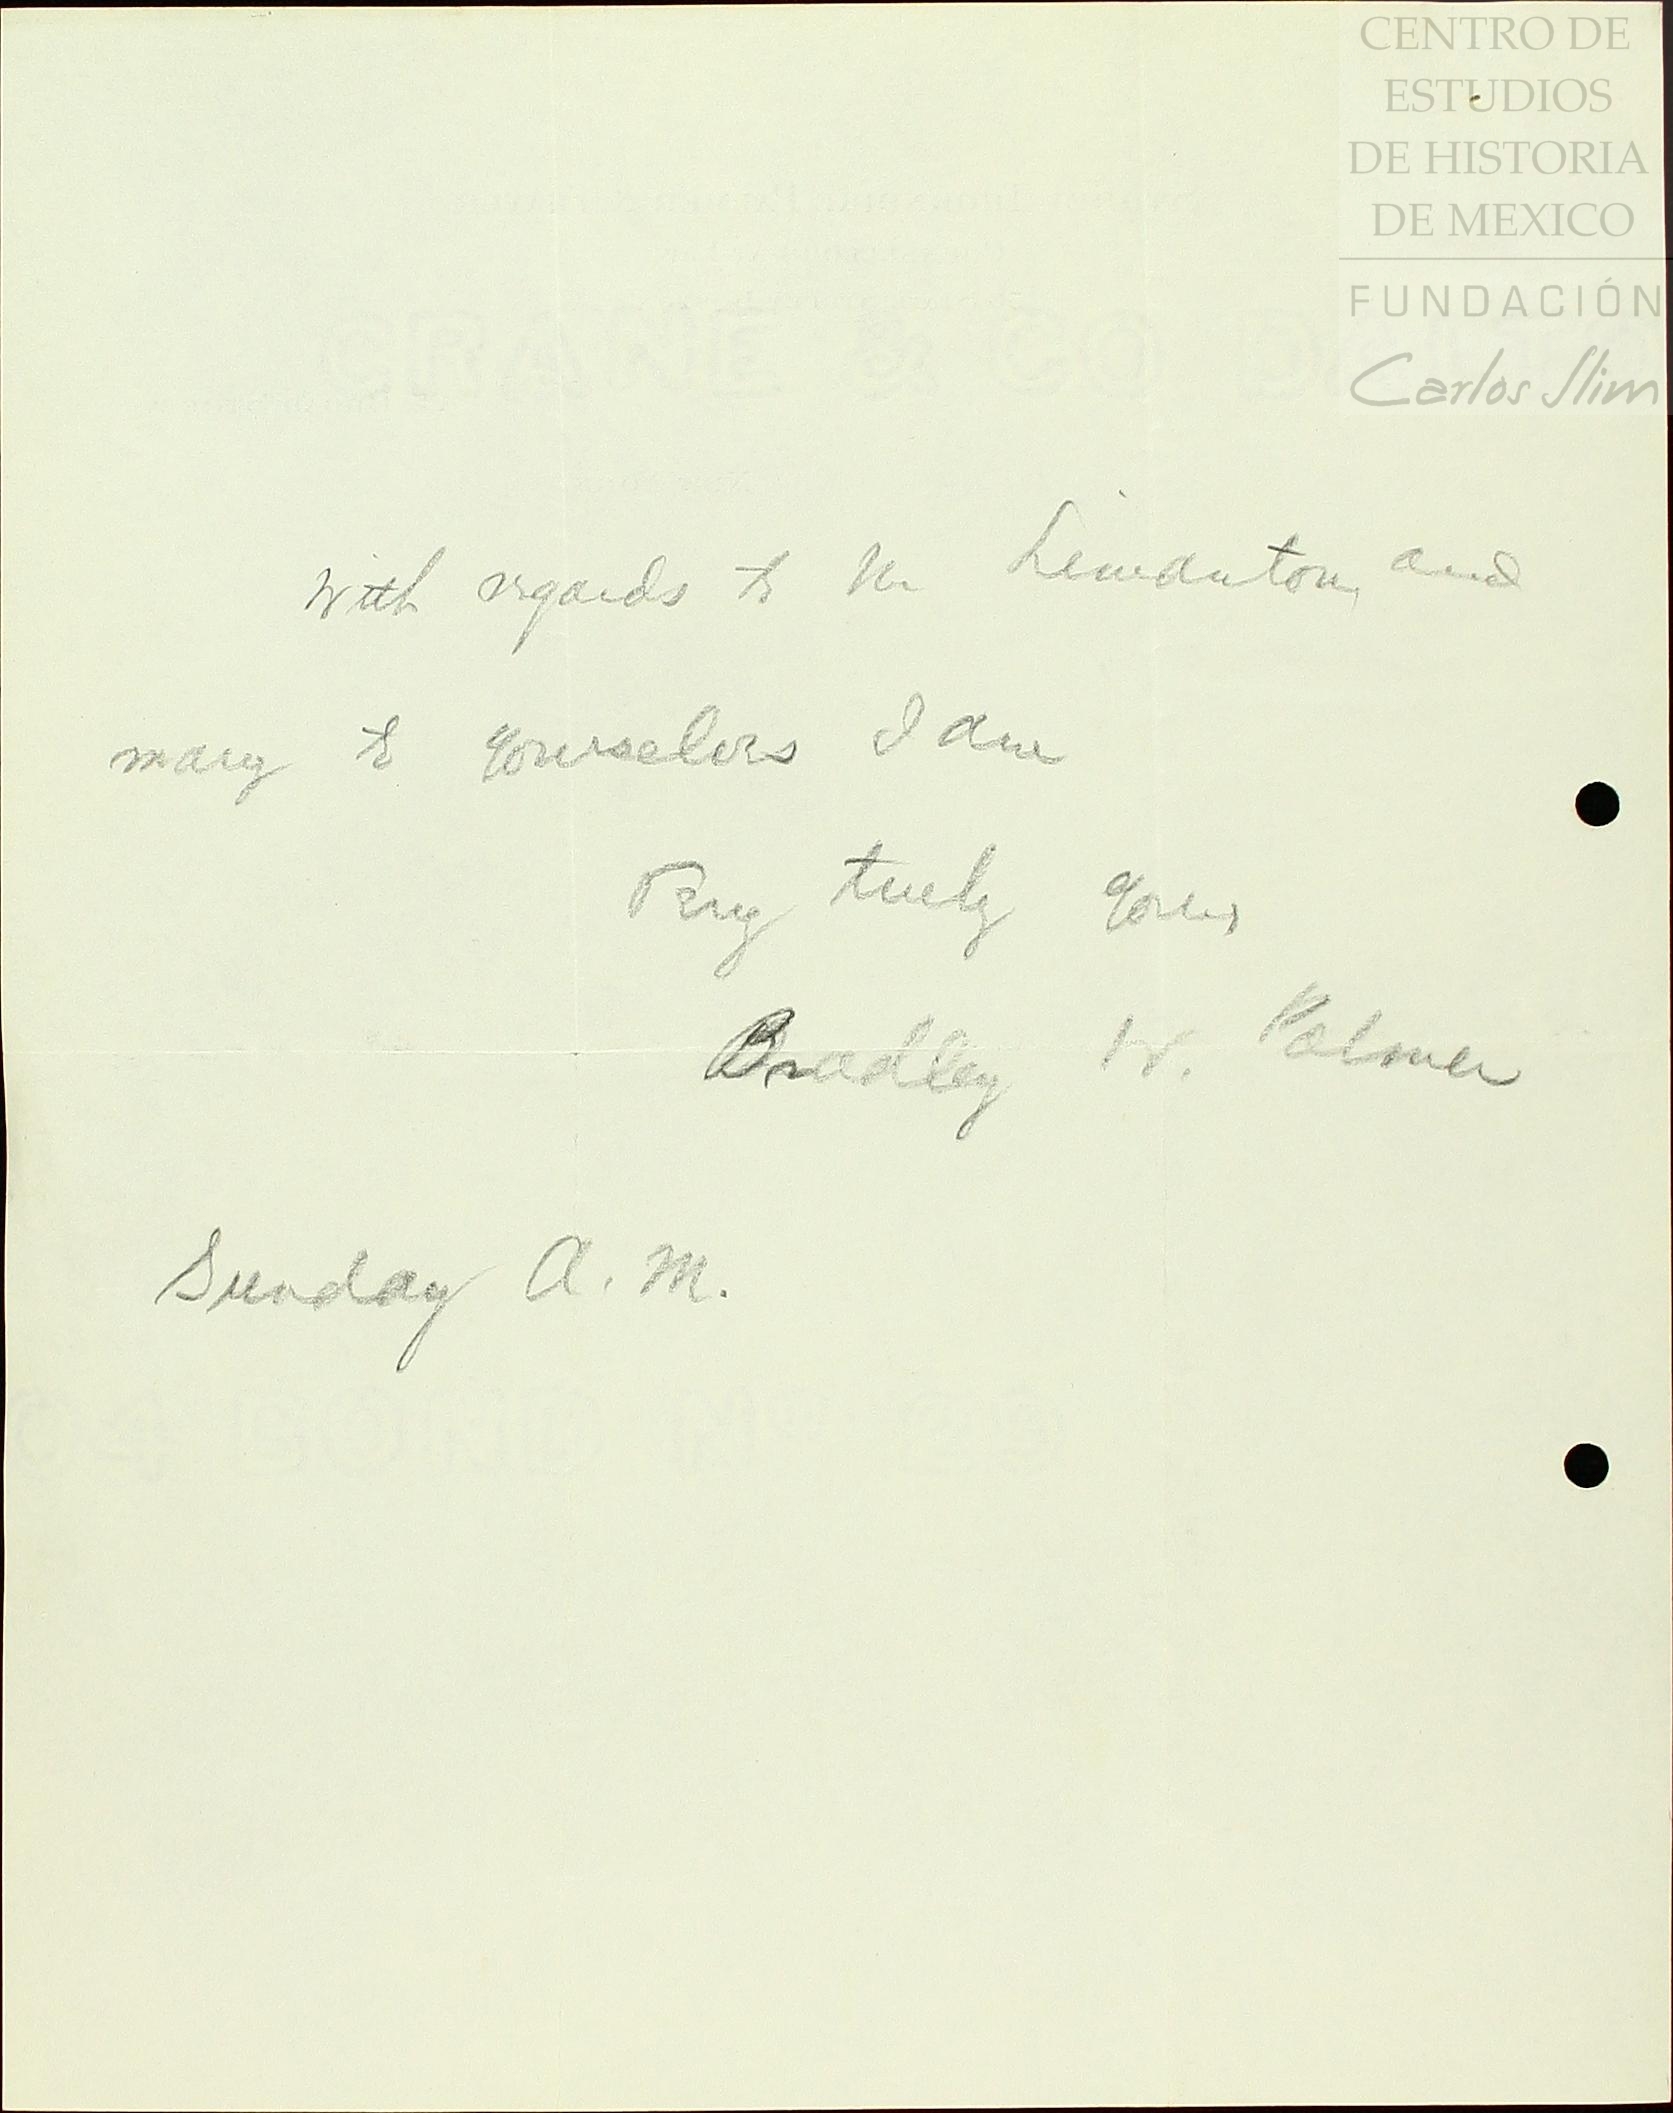 CENTRO DE
ESTUDIOS
DE HISTORIA
DE MEXICO
FUNDACIÓN
Carlos Slim
With regards to Mr Limantour, and
many to yourselves I am
Very truly yours
Bradley W. Palmer
Sunday A. M.